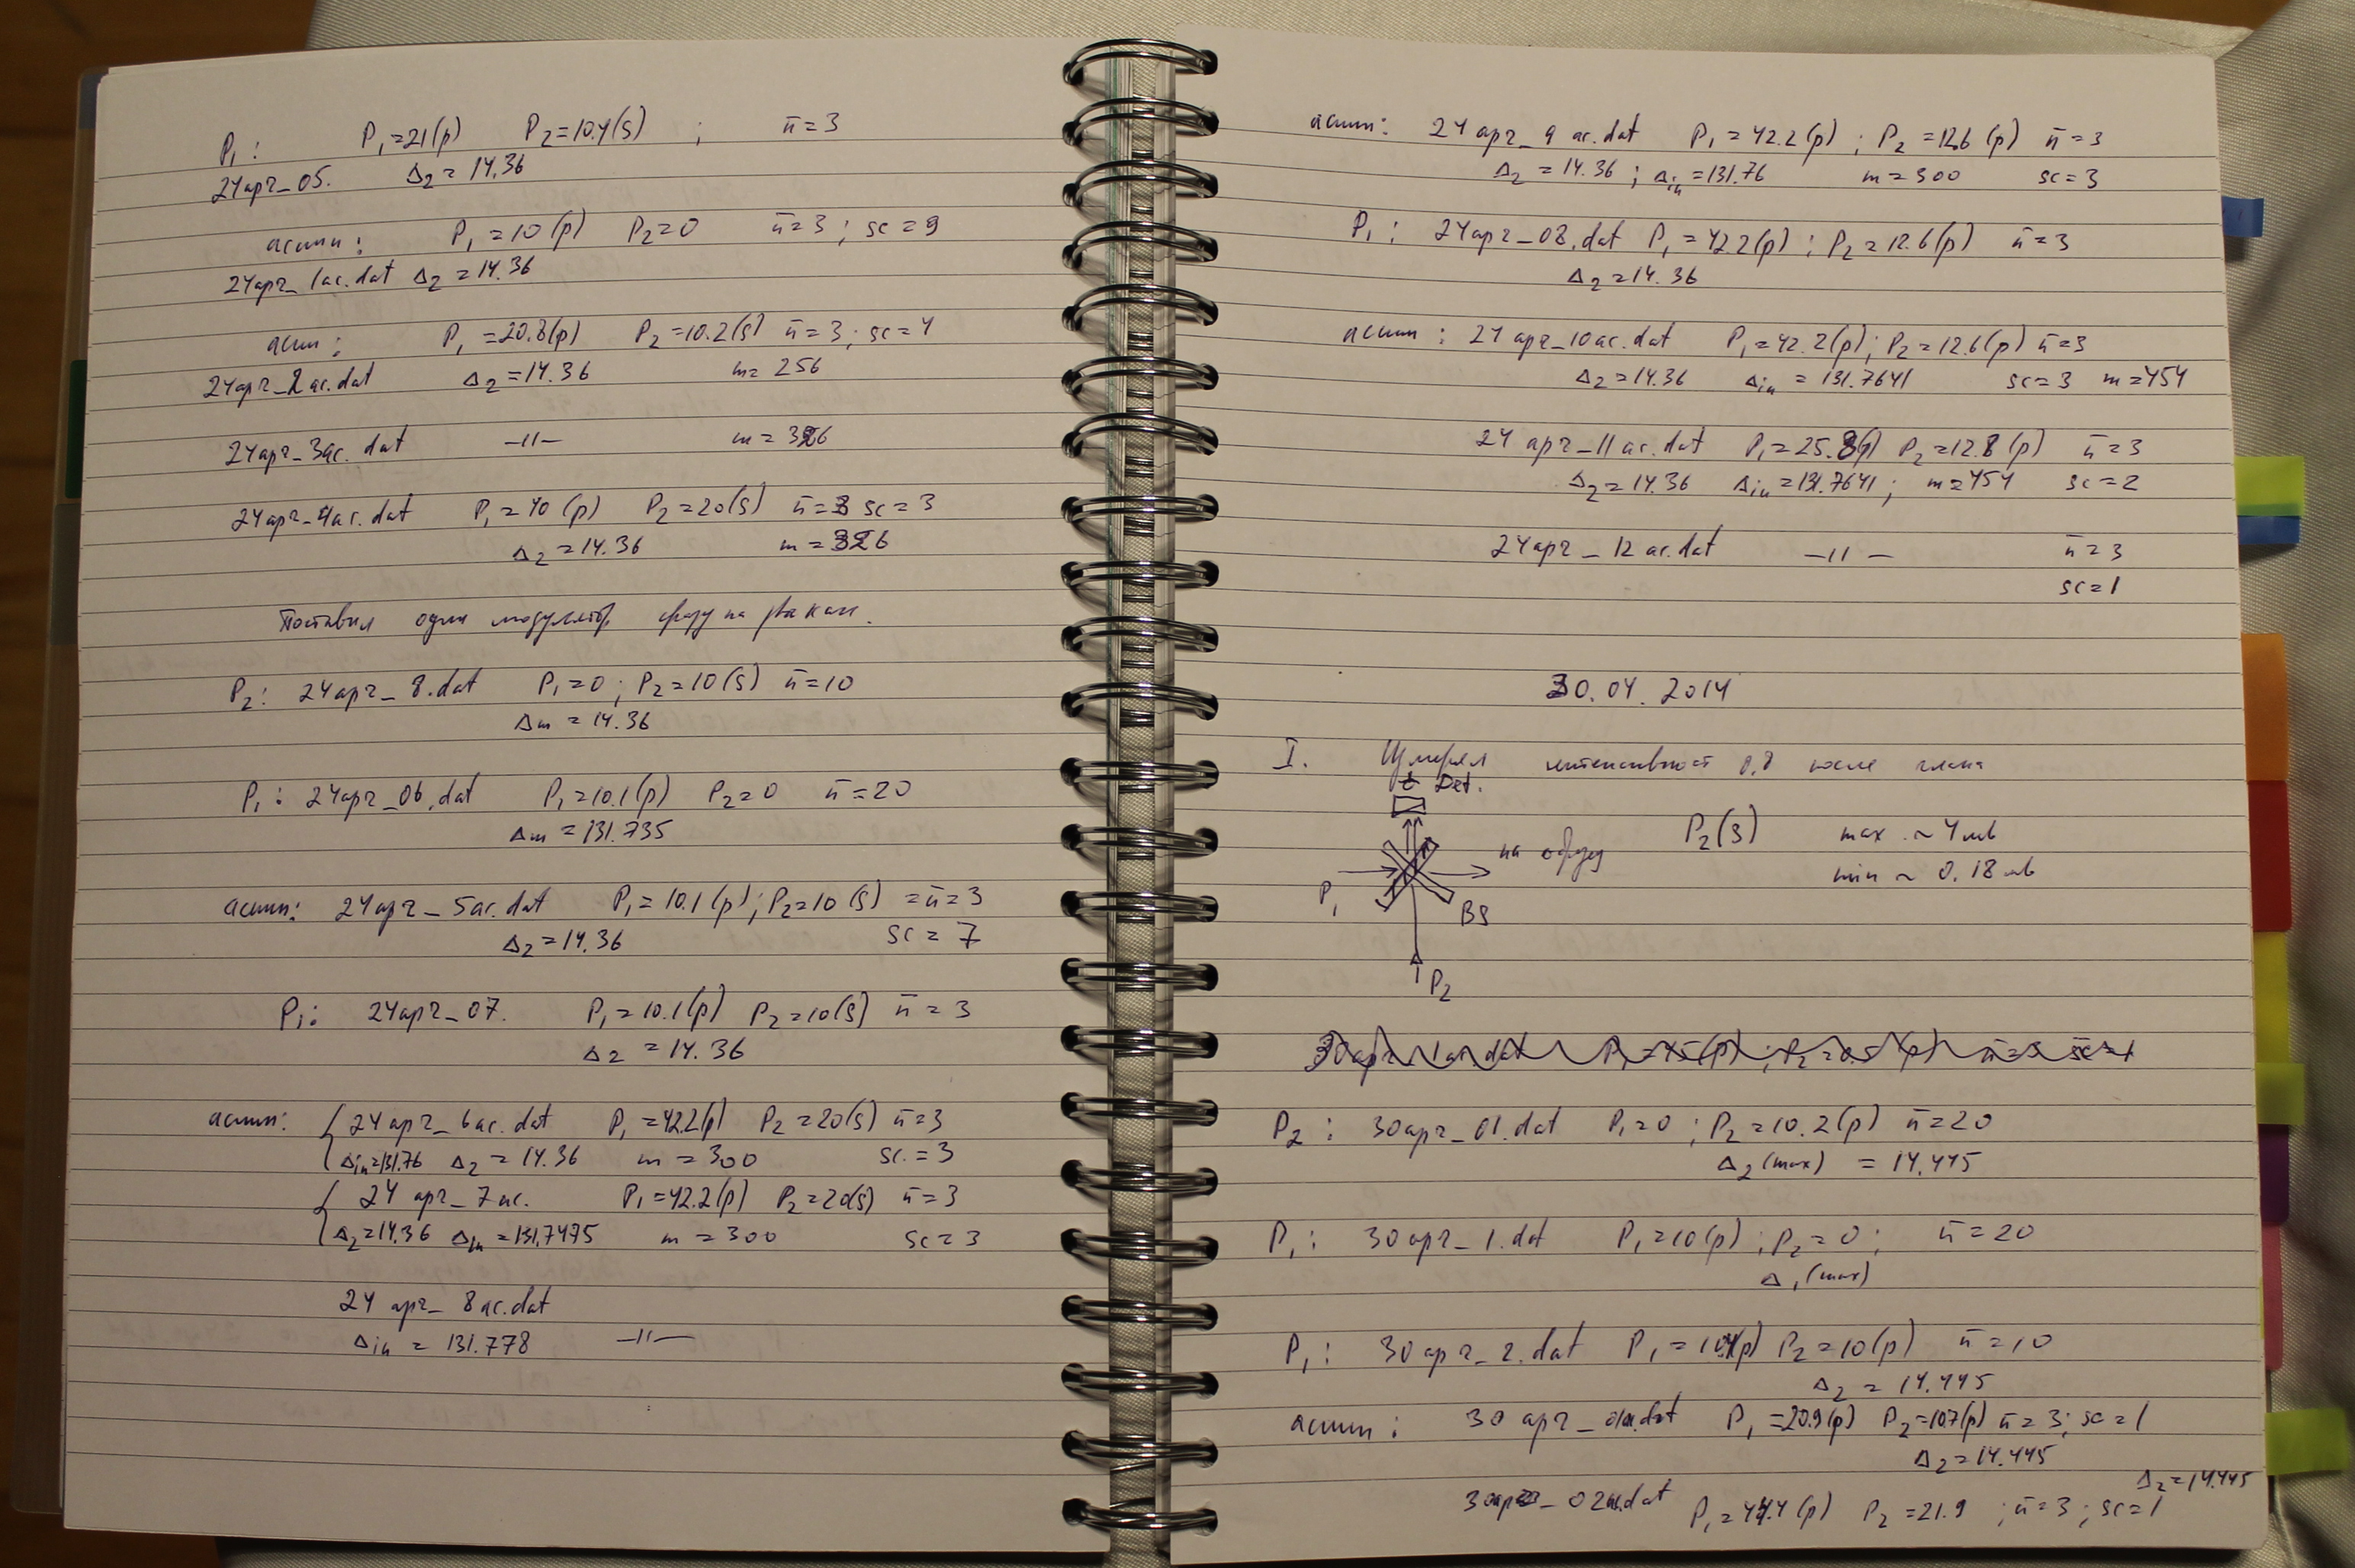 P₁: P₁=21(p) P₂=10.4(s) ; n̄=3
24apr_05. Δ₂=14.36
асимм: P₁=10(p) P₂=0 n̄=3; sc=9
24apr_1ac.dat Δ₂=14.36
асим: P₁=20.8(p) P₂=10.2(s) n̄=3; sc=4
24apr_2ac.dat Δ₂=14.36 m=256
24apr_3ac.dat —11— m=356
24apr_4ac.dat P₁=40(p) P₂=20(s) n̄=3 sc=3
Δ₂=14.36 m=356
Поставил один модулятор сразу на два
P₂: 24apr_8.dat P₁=0; P₂=10(s) n̄=10
Δm=14.36
P₁: 24apr_06.dat P₁=10.1(p) P₂=0 n̄=20
Δm=131.735
асимм: 24apr_5ac.dat P₁=10.1(p); P₂=10(s) =n̄=3
Δ₂=14.36 sc=7
P₁: 24apr_07. P₁=10.1(p) P₂=10(s) n̄=3
Δ₂=14.36
асимм: { 24apr_6ac.dat P₁=42.2(p) P₂=20(s) n̄=3
Δin=131.76 Δ₂=14.36 m=300 sc.=3
{ 24apr_7ac. P₁=42.2(p) P₂=20(s) n̄=3
Δ₂=14.36 Δin=131.7475 m=300 sc=3
24apr_8ac.dat
Δin=131.778 —11—
асимм: 24apr_9ac.dat P₁=42.2(p); P₂=12.6(p) n̄=3
Δ₂=14.36; Δin=131.76 m=300 sc=3
P₁: 24apr_08.dat P₁=42.2(p); P₂=12.6(p) n̄=3
Δ₂=14.36
асимм: 24apr_10ac.dat P₁=42.2(p); P₂=12.6(p) n̄=3
Δ₂=14.36 Δin=131.7641 sc=3 m=454
24apr_11ac.dat P₁=25.8(p) P₂=12.8(p) n̄=3
Δ₂=14.36 Δin=131.7641; m=454 sc=2
24apr_12ac.dat —11— n̄=3
sc=1
30.04.2014
I. Измерял интенсивност после
Det.
P₁ на образец BS P₂
P₂(s) max ~ 4мв
min ~ 0.18мв
P₂: 30apr_01.dat P₁=0; P₂=10.2(p) n̄=20
Δ₂(max) = 14.445
P₁: 30apr_1.dat P₁=10(p); P₂=0; n̄=20
Δ₁(max)
P₁: 30apr_2.dat P₁=10.4(p) P₂=10(p) n̄=10
Δ₂=14.445
асимм: 30apr_01ac.dat P₁=20.9(p) P₂=10.7(p) n̄=3; sc=1
Δ₂=14.445
Δ₂=14.445
30apr_02ac.dat P₁=44.4(p) P₂=21.9 ; n̄=3; sc=1